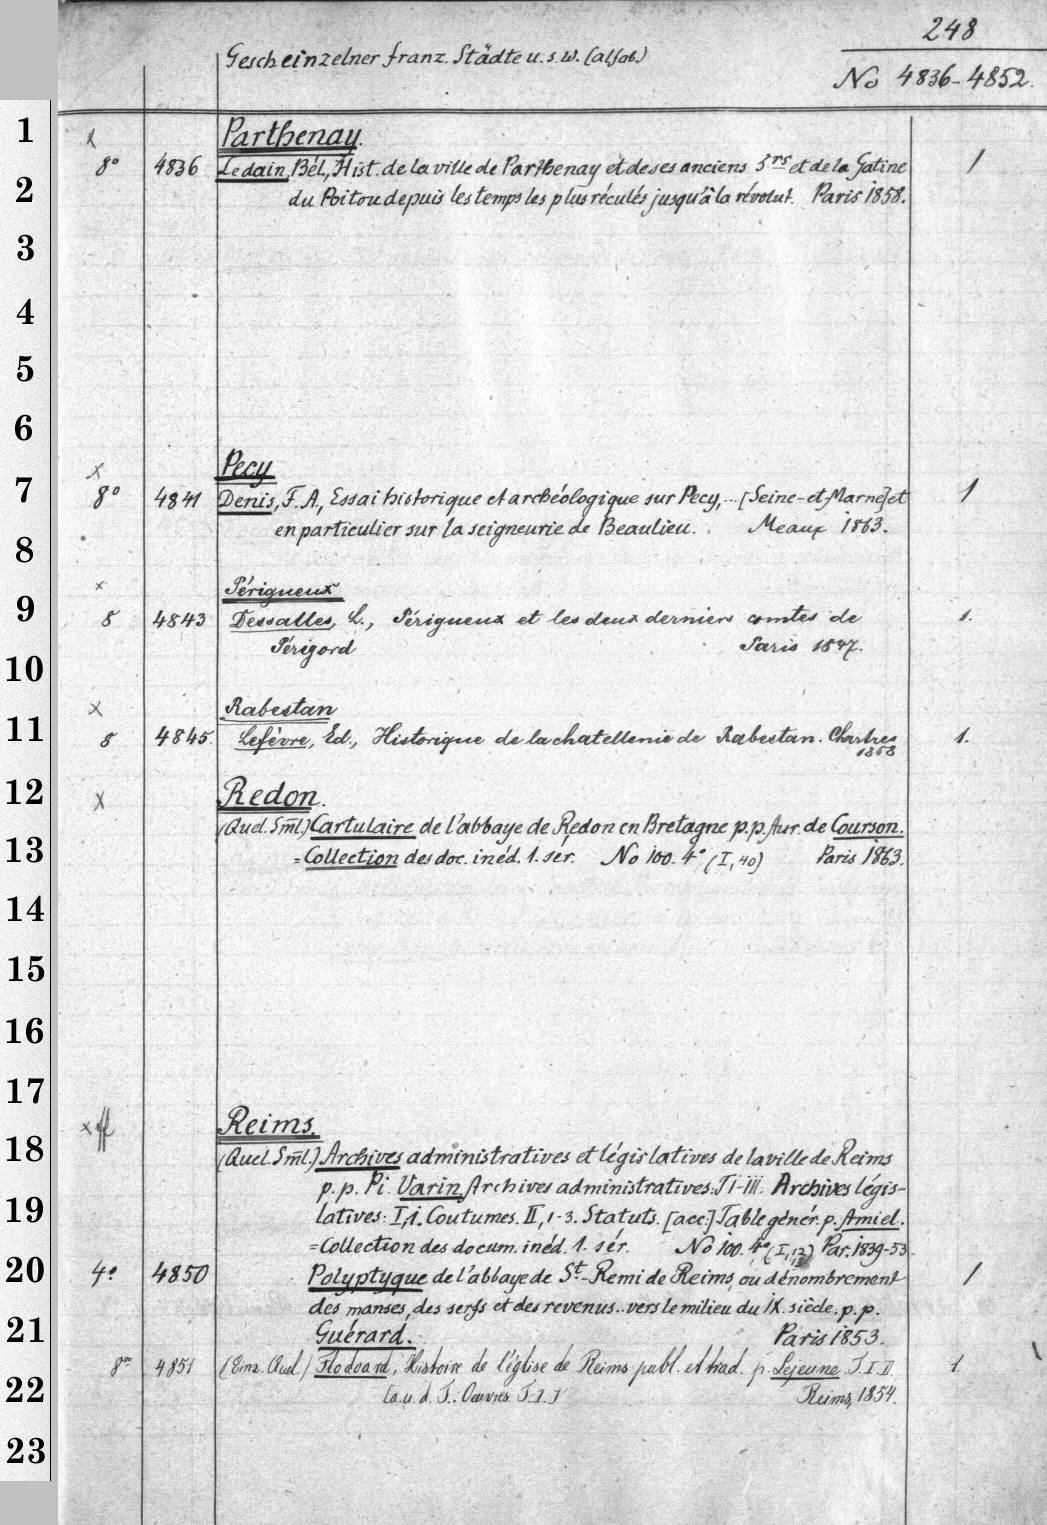 248
Gesch einzelner franz. Städte u. s. w. (alfab.)
No 4836-4852.
1
x Parthenay.
8° 4836 Ledain, Bél., Hist. de la ville de Parthenay et de ses anciens Srs et de la Gatine 1
2
du Poitou depuis les temps les plus réculés jusqu'à la révolut. Paris 1858.
3
4
5
6
x Pecy
7
8° 4841 Denis, F. A., Essai historique et archéologique sur Pecy,... [Seine-et-Marne] et 1
en particulier sur la seigneurie de Beaulieu. Meaux 1863.
8
x Périgueux
9
8 4843 Dessalles, L., Périgueux et les deux derniers comtes de 1.
Périgord Paris 1847.
10
x Rabestan
11
8 4845. Lefèvre, Ed., Historique de la chatellenie de Rabestan. Chartres 1.
1858
12
x Redon.
(Quel. Sml.) Cartulaire de l'abbaye de Redon en Bretagne p. p. Aur. de Courson.
13
=Collection des doc. inéd. 1. sér. No 100. 4° (I, 40) Paris 1863.
14
15
16
17
x ff Reims.
18
(Quel. Sml.) Archives administratives et législatives de la ville de Reims
p. p. Pi. Varin, Archives administratives: T I-III. Archives légis-
19
latives: I,1. Coutumes. II, 1-3. Statuts. [acc:] Table génér. p. Amiel.
=Collection des docum. inéd. 1. sér. No 100. 4° (I,12) Par. 1839-53.
20
4° 4850 Polyptyque de l'abbaye de St-Remi de Reims, ou dénombrement 1
des manses, des serfs et des revenus.. vers le milieu du IX. siècle. p. p.
21
Guérard. Paris 1853.
8° 4851 (Einz. Quel.) Flodoard, Histoire de l'église de Reims publ. et trad. p. Lejeune. T. I. II. 1
22
[a. u. d. T.: Oeuvres. T. I.] Reims, 1854.
23